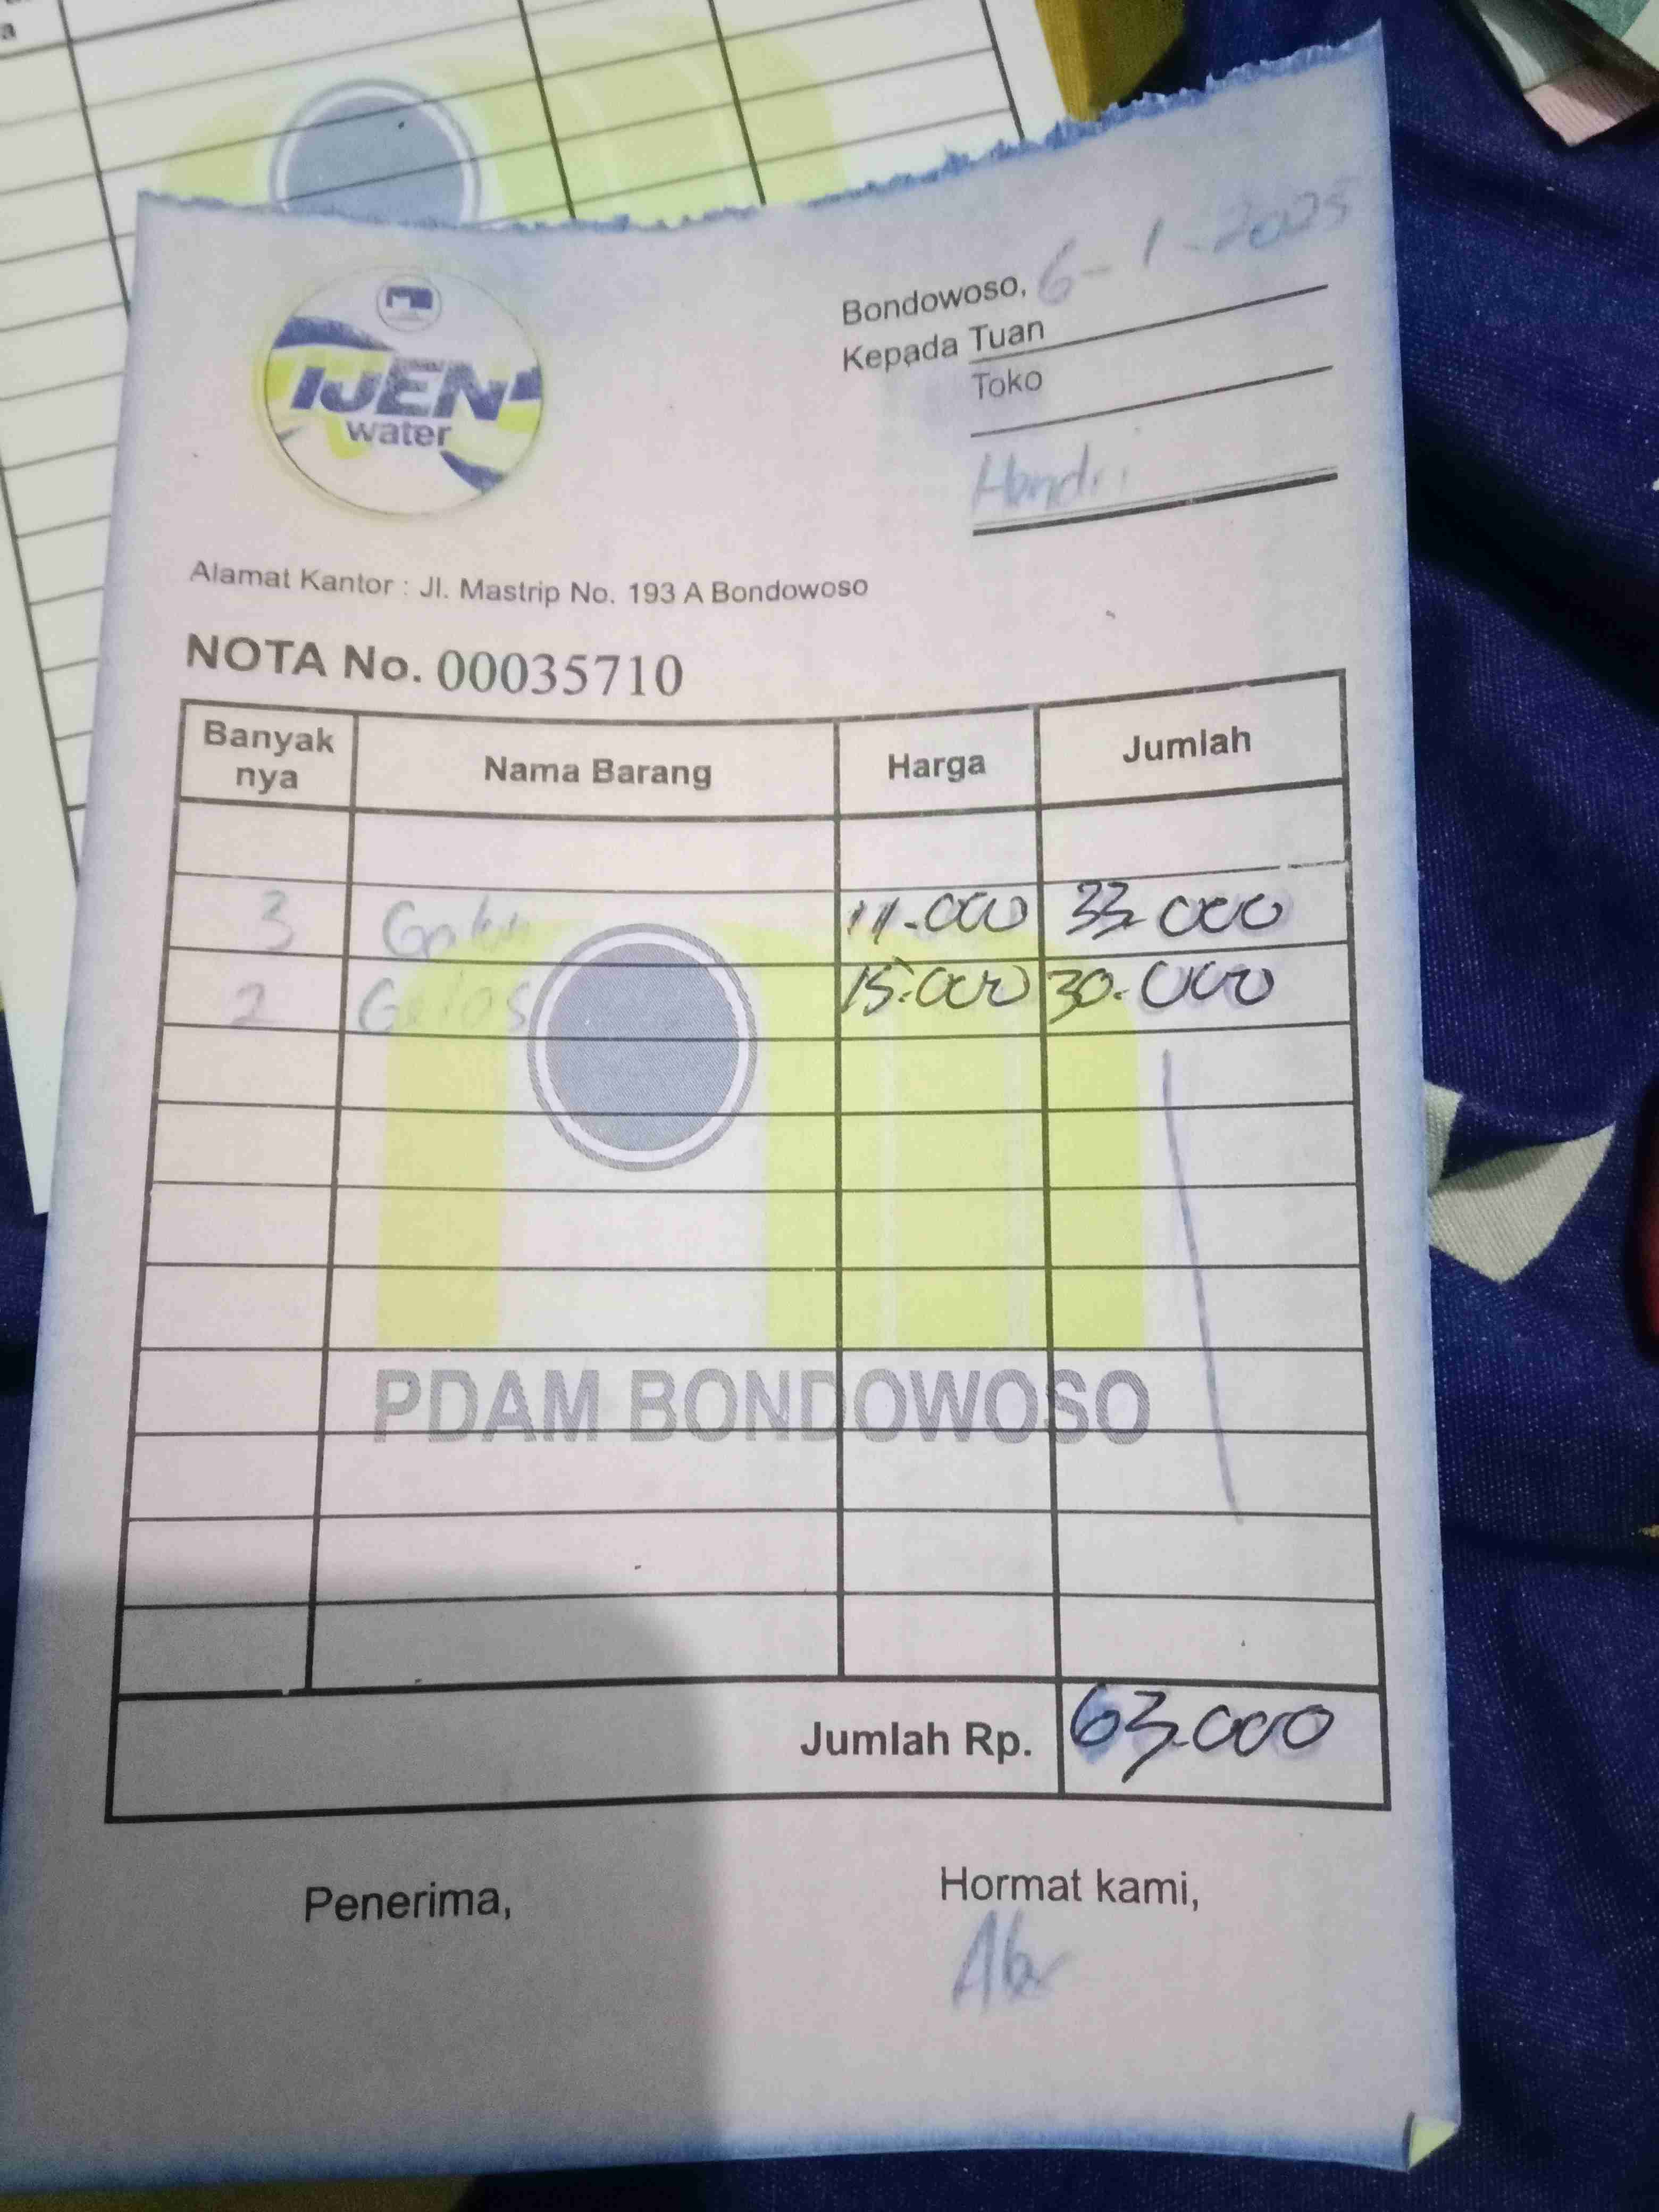 IJEN
water
Bondowoso, 6-1-2025
Kepada Tuan
Toko
Hendri
Alamat Kantor : Jl. Mastrip No. 193 A Bondowoso
NOTA No. 00035710
Banyak nya Nama Barang Harga Jumlah
3 Galon 11.000 33.000
2 Gelas 15.000 30.000
PDAM BONDOWOSO
Jumlah Rp. 63.000
Penerima, Hormat kami,